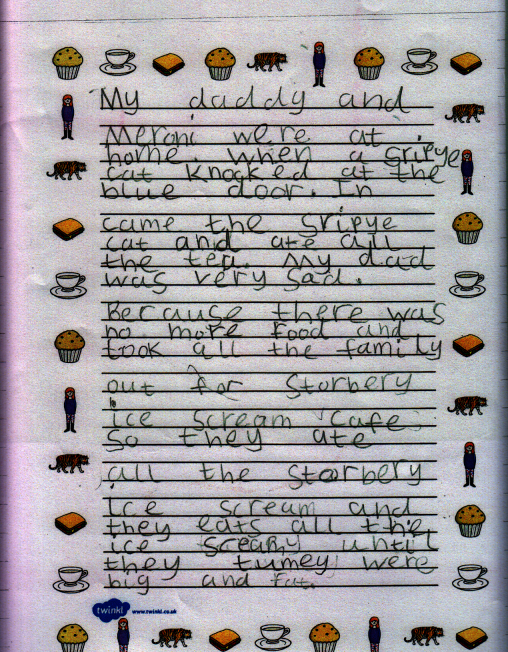 My daddy and
Meroni were at
home. when a sripye
cat knocked at the
blue door. In
came the sripye
cat and ate all
the tea. My dad
was very sad.
Because there was
no more food and
took all the family
out for Storbery
ice scream cafe
so they ate
all the Storbery
Ice scream and
they eats all the
ice screamy until
they tumey were
big and fat.
twinkl www.twinkl.co.uk